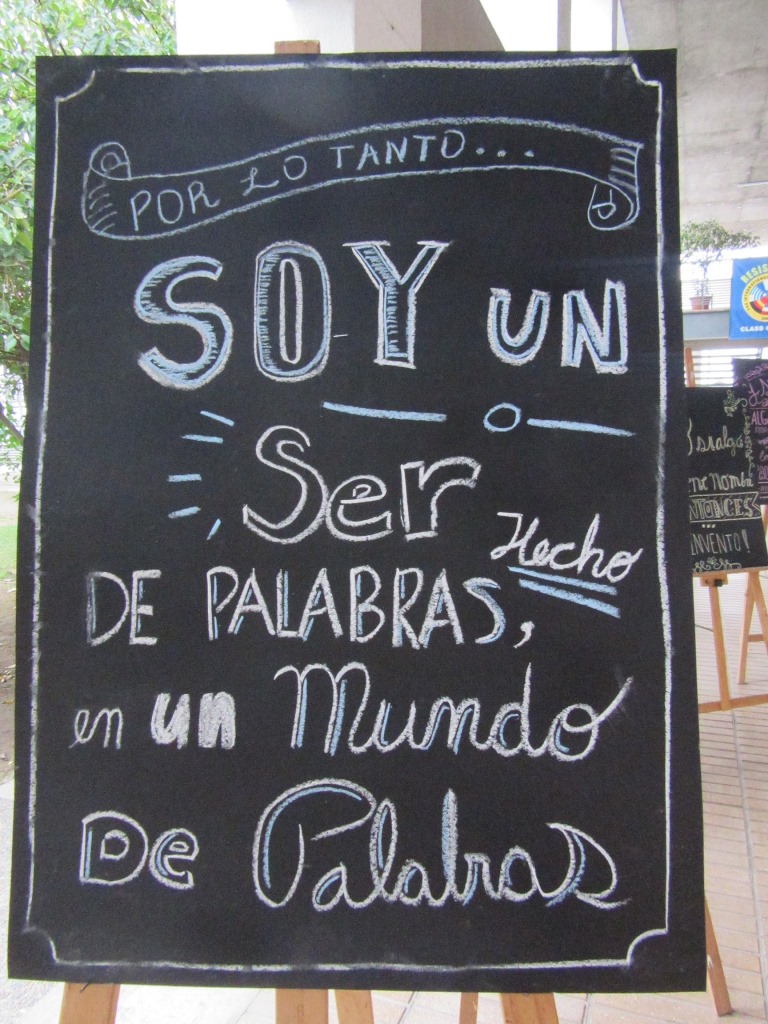 POR LO TANTO...
SOY UN
Ser
Hecho
DE PALABRAS,
en un Mundo
De Palabras
RESIS
CLASS
ALG
nombr
ENTONCES
...
INVENTO!